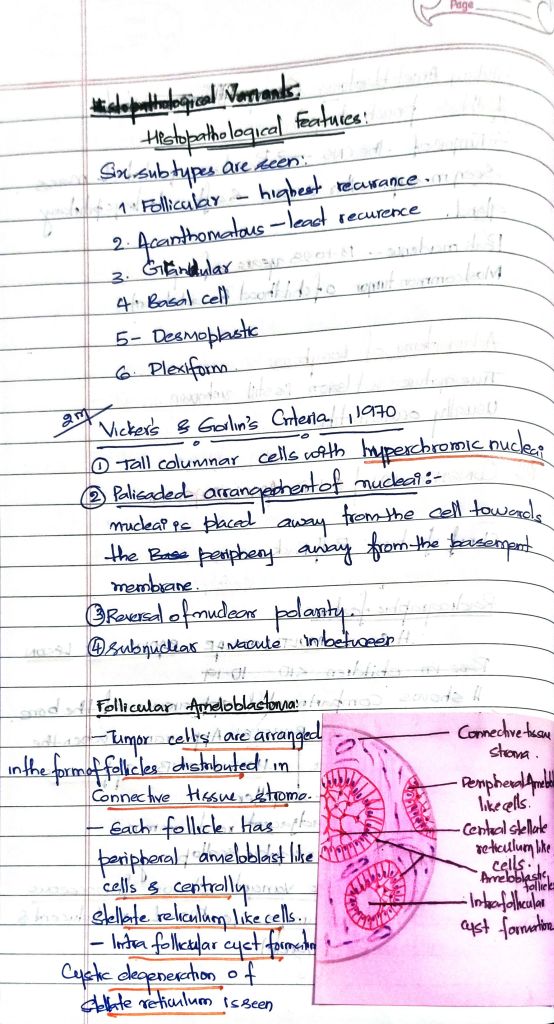 Page
Histopathological Variants:
Histopathological Features:
Six subtypes are seen:
1 Follicular – highest recurance.
2. Acanthomatous – least recurence
3. Granular
4. Basal cell
5– Desmoplastic
6. Plexiform
2m Vicker's & Gorlin's Criteria, 1970
① Tall columnar cells with hyperchromic nucleai
② Palisaded arrangement of nucleai:-
nucleai is placed away from the cell towards
the Base periphery away from the basement
membrane.
③ Reversal of nuclear polarity.
④ subnuclear vacule inbetween
Follicular Ameloblastoma:
– Tumor cells are arranged
in the form of follicles distributed in
Connective tissue stroma.
– Each follicle has
peripheral ameloblast like
cells & centrally
stellate reticulum like cells.
– Intra follicular cyst formation
Cystic degeneration of
stellate reticulum is seen
Connective tissue
stroma.
Peripheral Amelob
like cells.
Central stellate
reticulum like
cells.
Ameloblastic
follicle
Intrafollicular
cyst formation